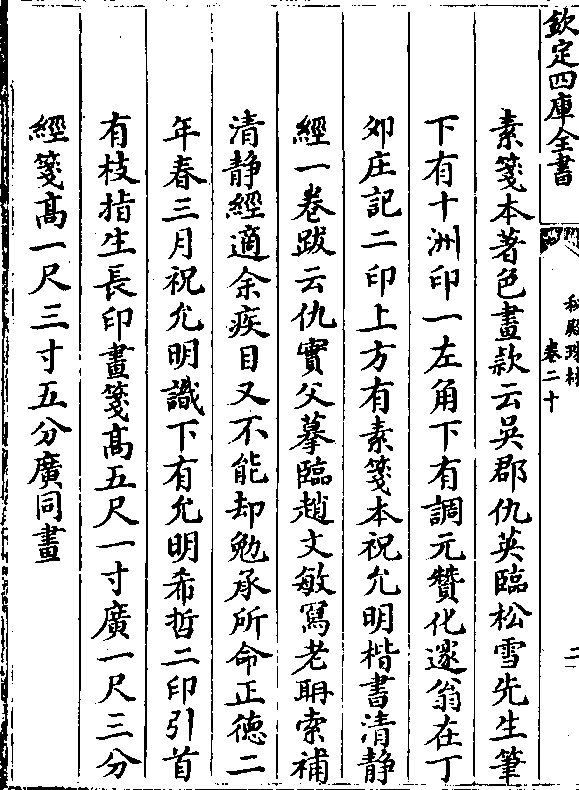 欽定四庫全書
秘殿珠林
卷二十
二
素箋本著色畫款云吳郡仇英臨松雪先生筆
下有十洲印一左角下有調元贊化邃翁在丁
夘庄記二印上方有素箋本祝允明楷書清静
經一卷跋云仇實父摹臨趙文敏寫老耼索補
清静經適余疾目又不能却勉承所命正徳二
年春三月祝允明識下有允明希哲二印引首
有枝指生長印畫箋髙五尺一寸廣一尺三分
經箋髙一尺三寸五分廣同畫